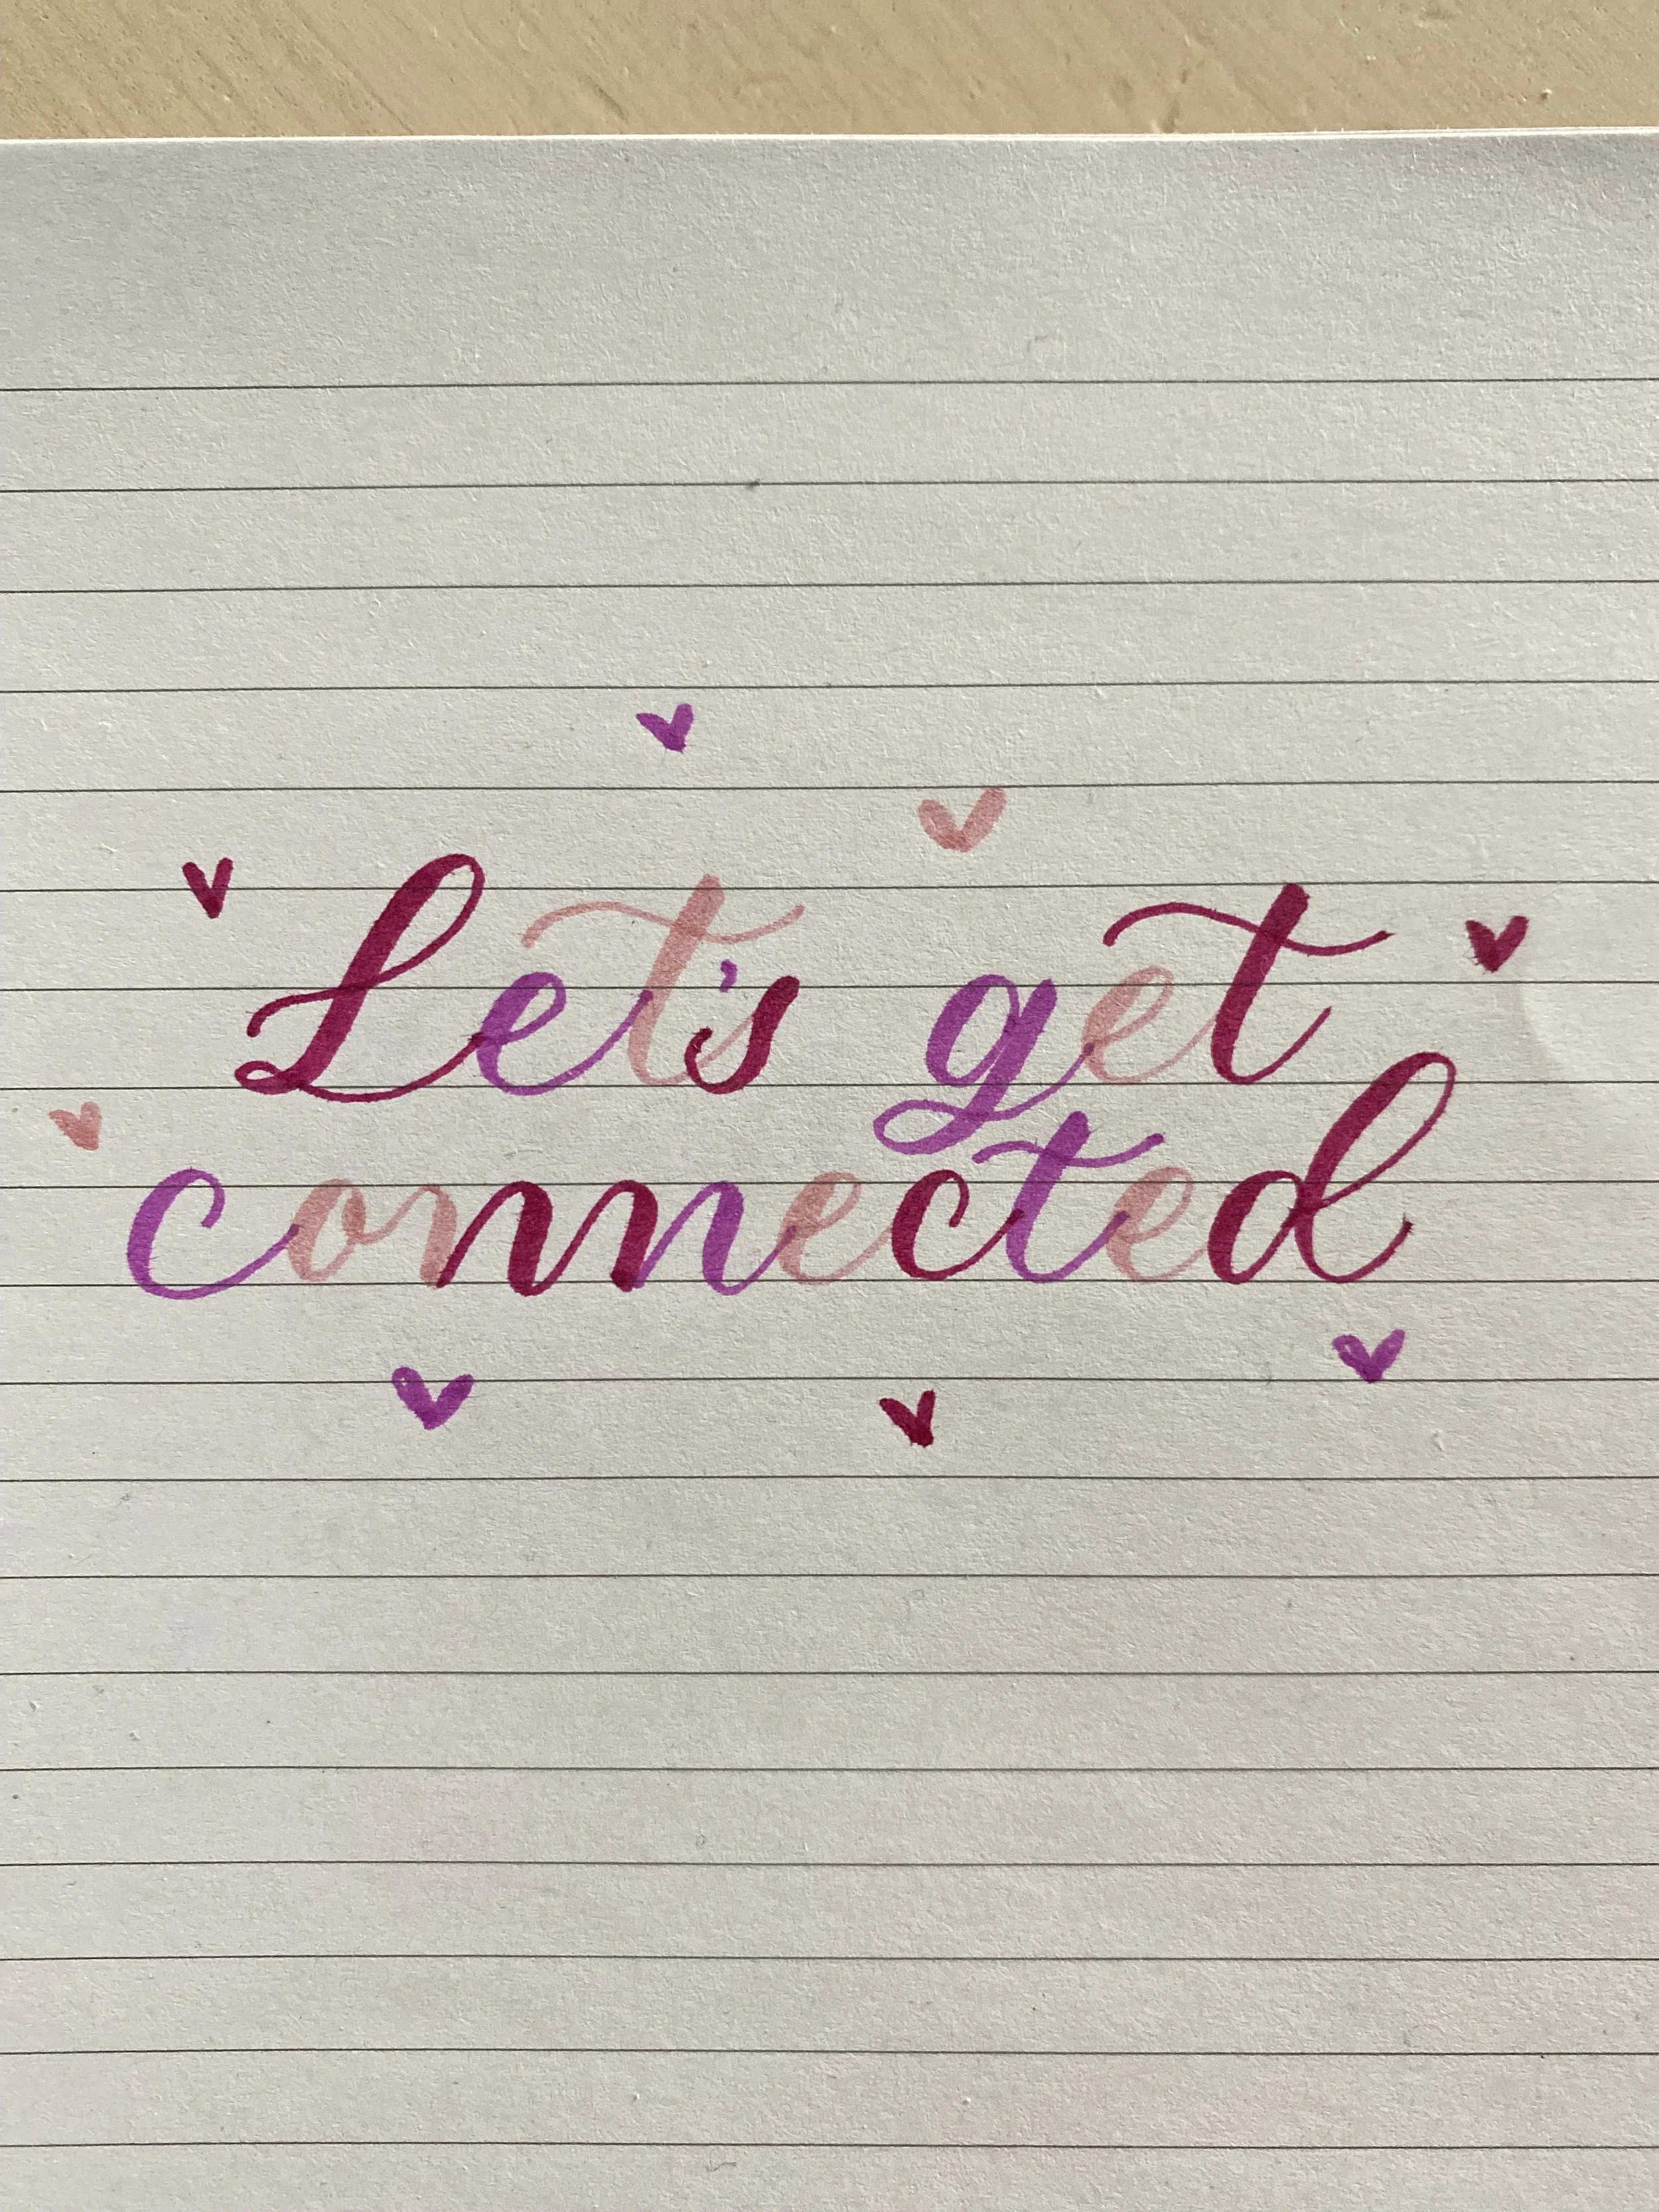 Let's get
connected